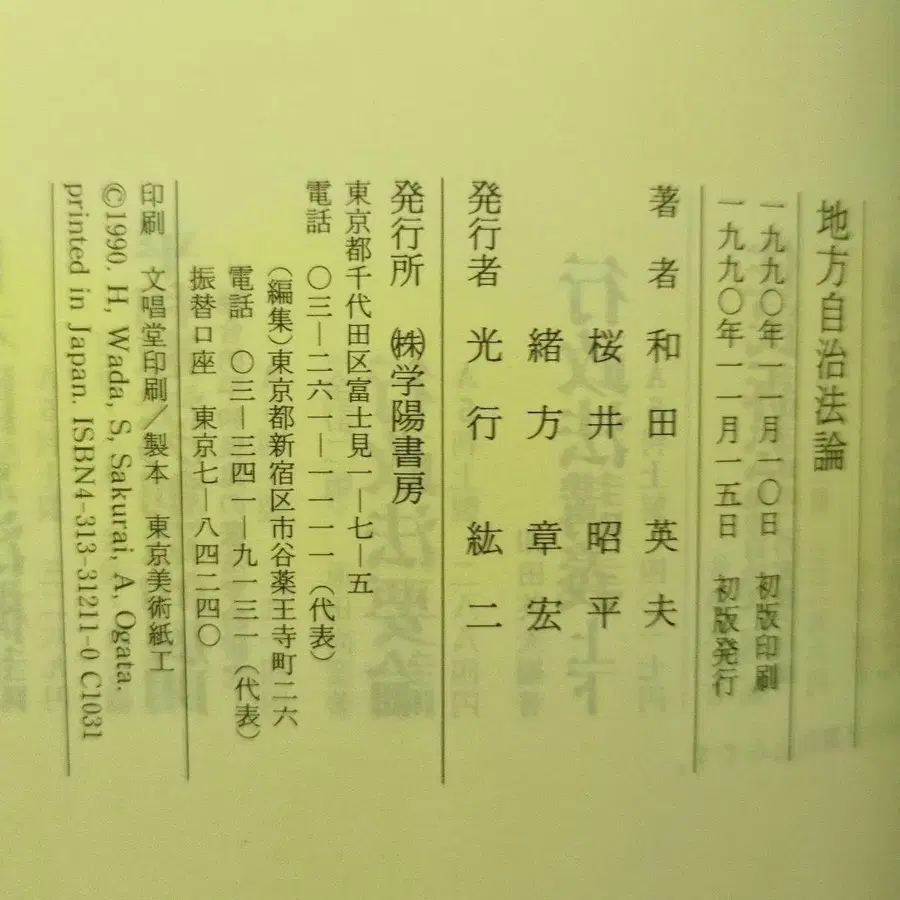 地方自治法論
一九九〇年一一月一〇日 初版印刷
一九九〇年一一月一五日 初版発行
著者 和田英夫
桜井昭平
緒方章宏
発行者 光行紘二
発行所 ㈱学陽書房
東京都千代田区富士見一―七―五
電話 〇三―二六一―一一一一(代表)
(編集)東京都新宿区市谷薬王寺町二六
電話 〇三―三四一―九一三一(代表)
振替口座 東京七―八四二四〇
印刷 文唱堂印刷/製本 東京美術紙工
©1990. H, Wada, S, Sakurai, A, Ogata.
printed in Japan. ISBN4-313-31211-0 C1031